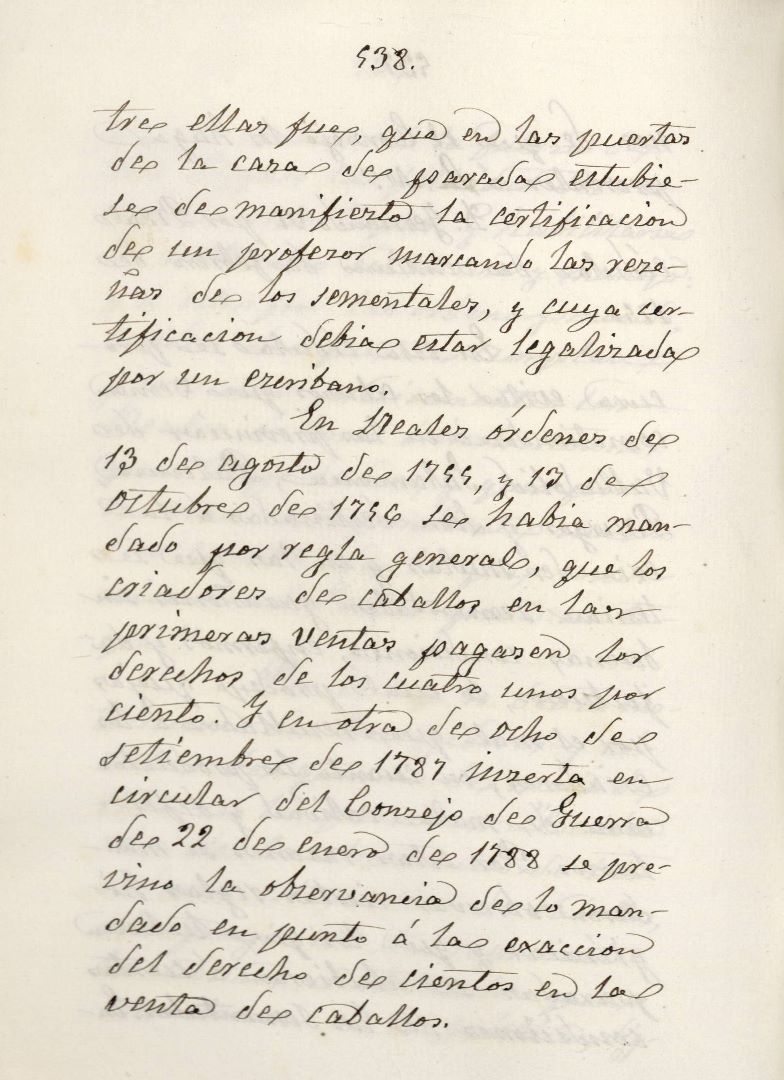 538.
tre ellas fue, que en las puertas
de la casa de parada estubie-
se de manifiesto la certificacion
de un profesor marcando las rese-
ñas de los sementales, y cuya cer-
tificacion debia estar legalizada
por un escribano.
En Reales órdenes de
13 de agosto de 1755, y 13 de
octubre de 1756 se habia man-
dado por regla general, que los
criadores de caballos en las
primeras ventas pagasen los
derechos de los cuatro unos por
ciento. Y en otra de ocho de
setiembre de 1787 inserta en
circular del Consejo de Guerra
de 22 de enero de 1788 se pre-
vino la observancia de lo man-
dado en punto á la exaccion
del derecho de cientos en la
venta de caballos.